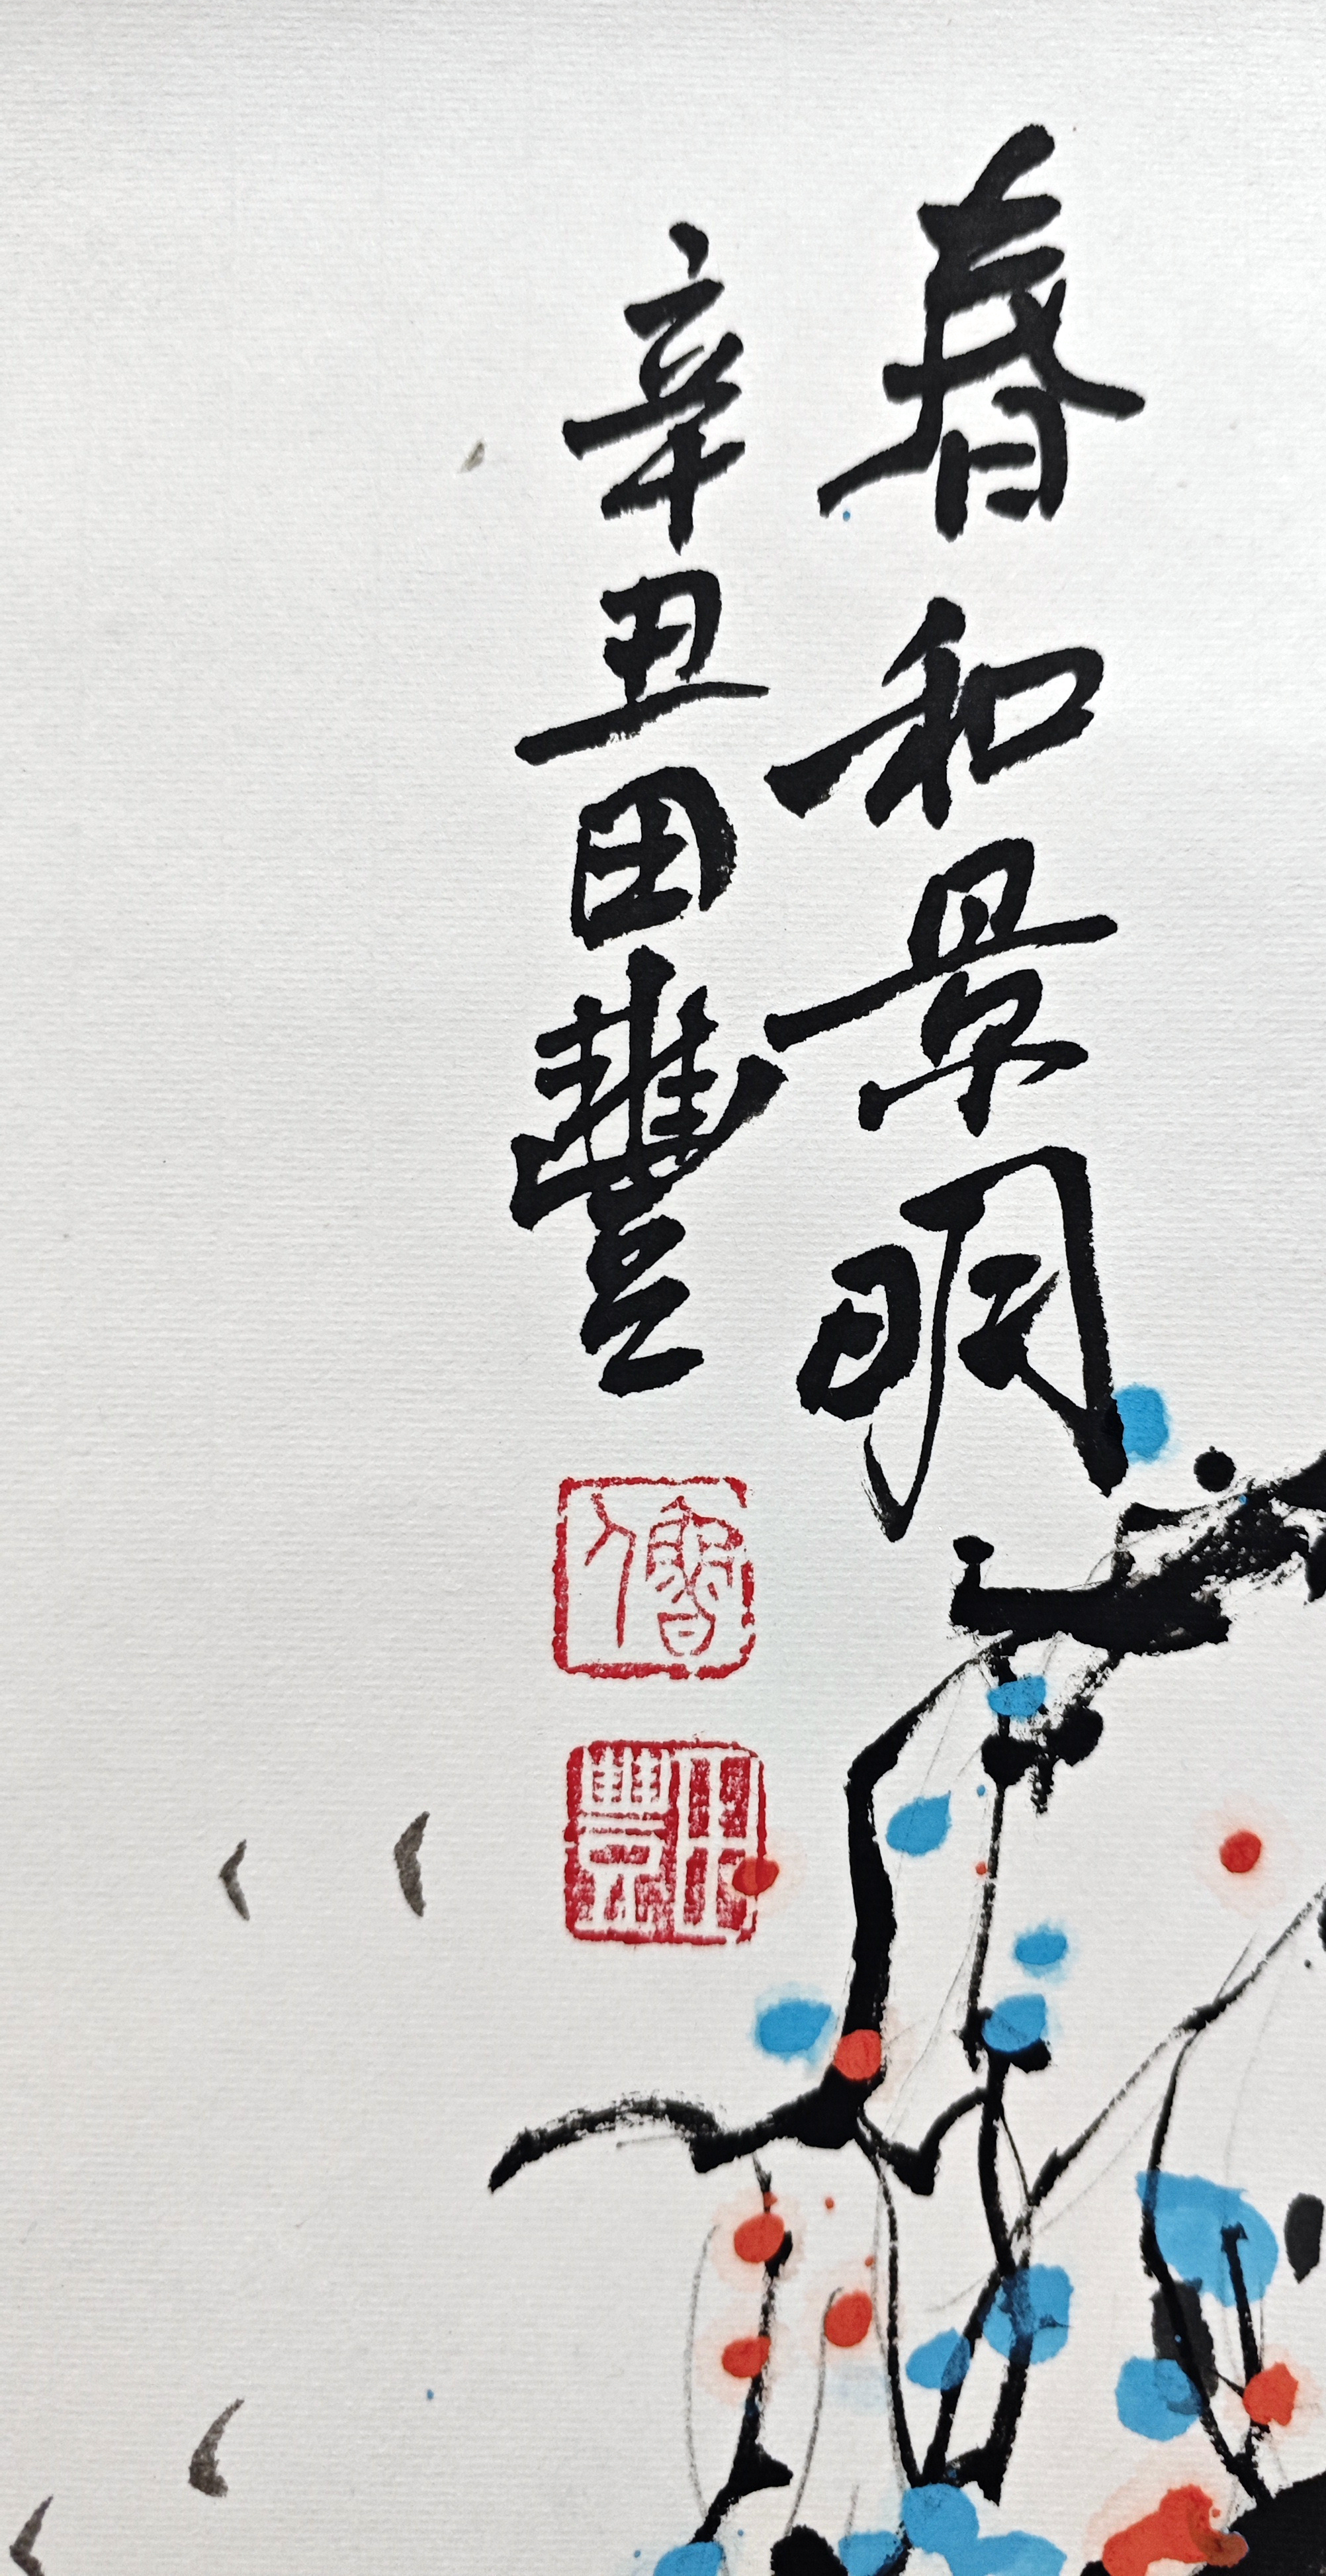 春和景明
辛丑田豐